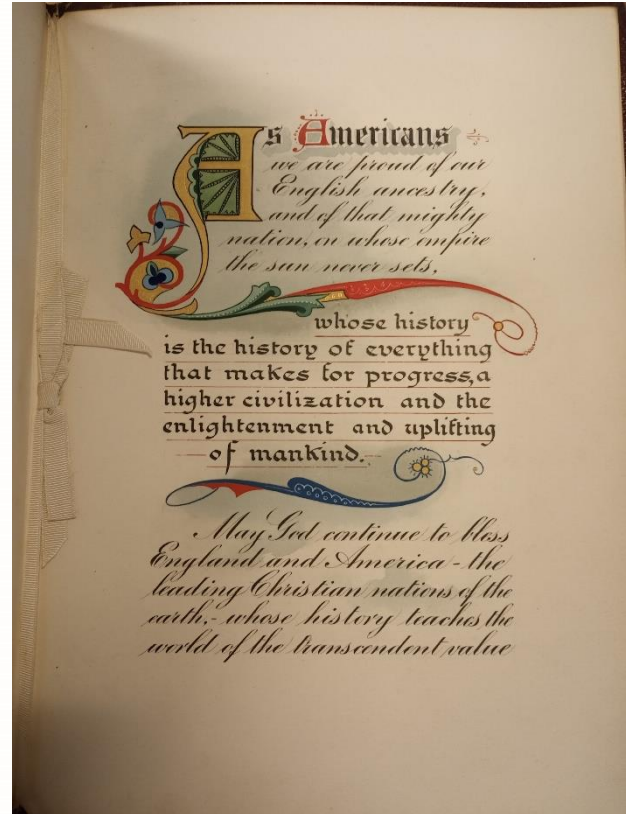 As Americans
we are proud of our
English ancestry,
and of that mighty
nation, on whose empire
the sun never sets,
whose history
is the history of everything
that makes for progress, a
higher civilization and the
enlightenment and uplifting
of mankind.
May God continue to bless
England and America - the
leading Christian nations of the
earth, - whose history teaches the
world of the transcendent value